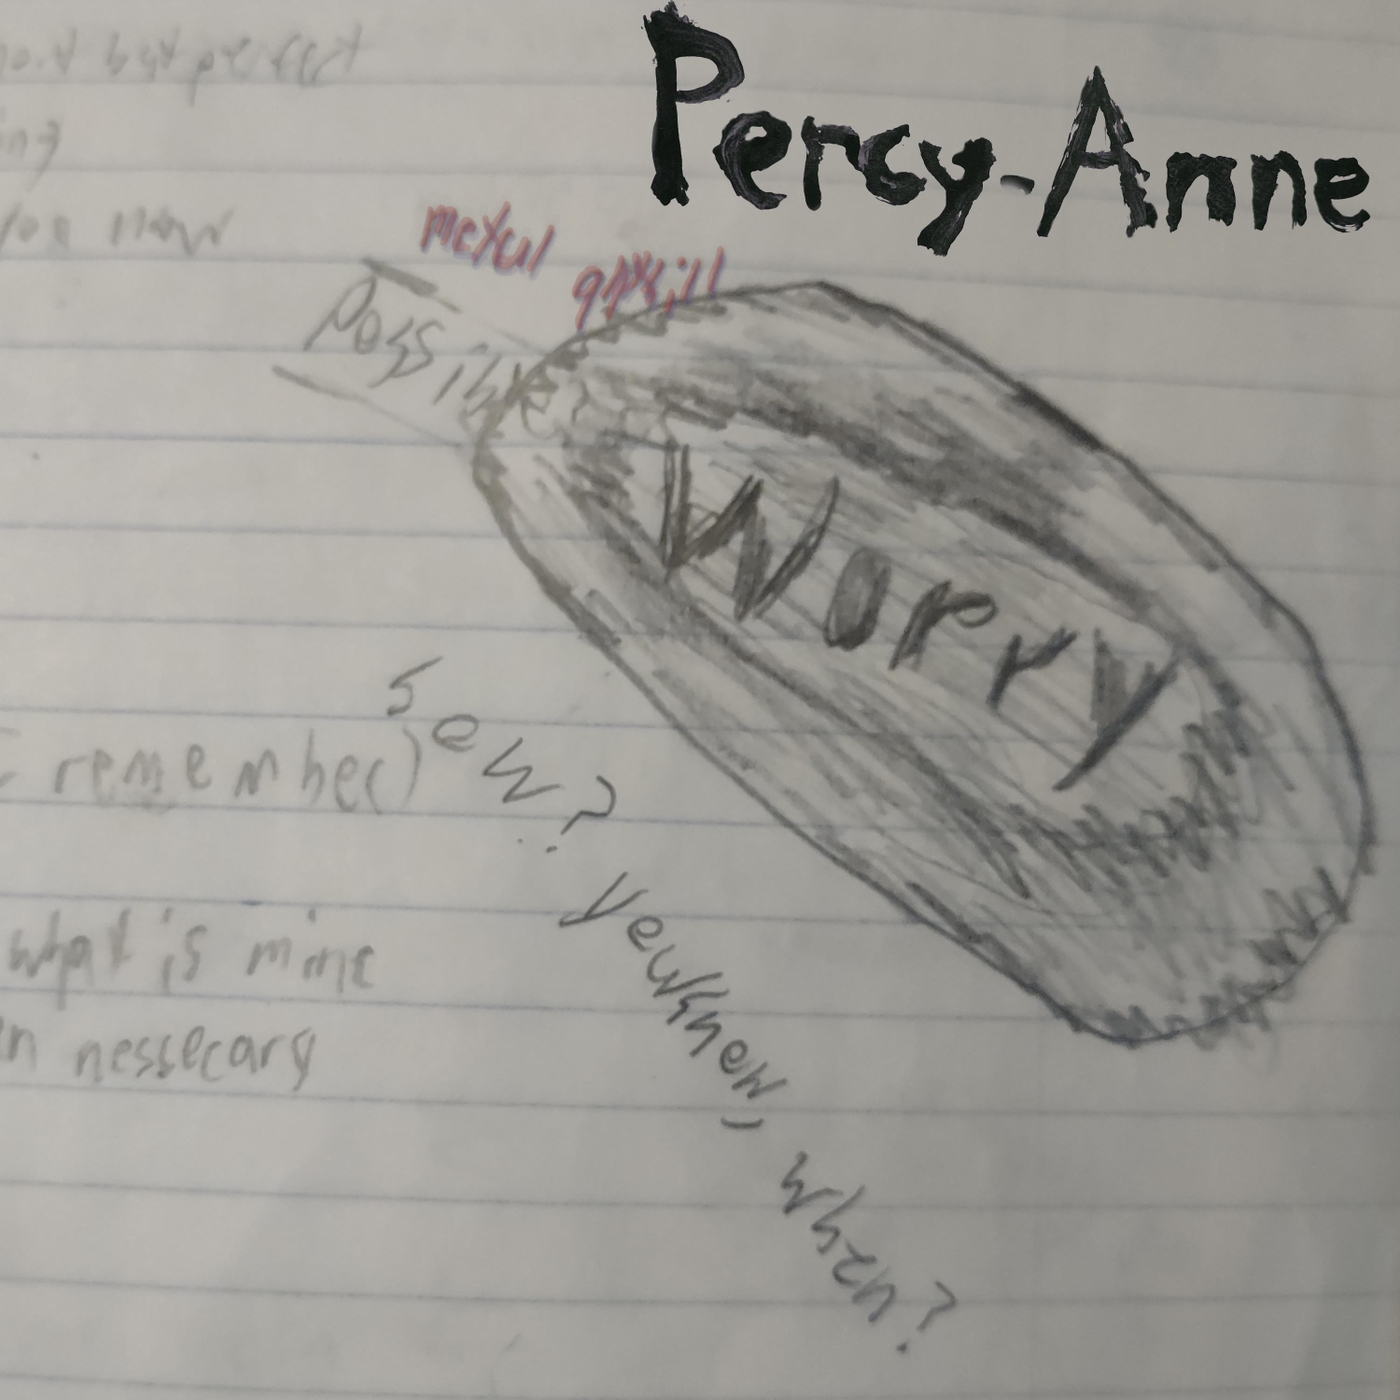 Percy-Anne
but perfect
ing
you now
metal
Possible?
Worry
remember)
sew?
yewknew,
when?
what is mine
nessecary